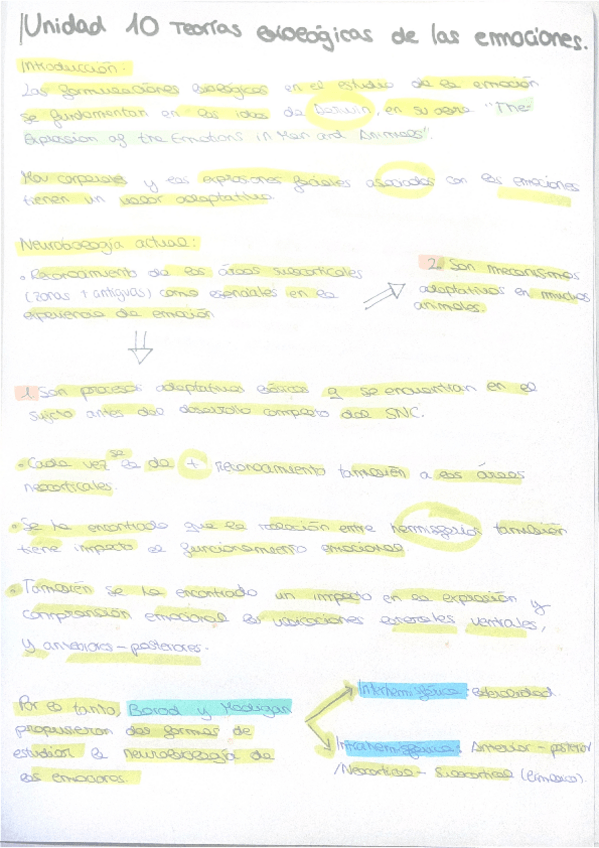 Unidad 10 Teorías biológicas de las emociones.
Introducción.
Las formulaciones biológicas en el estudio de la emoción
se fundamentan en las ideas de Darwin, en su obra "The
Expression of the Emotions in Man and Animals".
Mov corporales y las expresiones faciales asociados con las emociones
tienen un valor adaptativo.
Neurobiología actual:
• Reconocimiento de las áreas subcorticales
(zonas + antiguas) como esenciales en la
experiencia de emoción
2. Son mecanismos
adaptativos en muchos
animales.
1. Son procesos adaptativos básicos q se encuentran en el
sujeto antes del desarrollo completo del SNC.
• Cada vez se le da + reconocimiento también a las áreas
neocorticales.
• Se ha encontrado que la relación entre hemisferios también
tiene impacto el funcionamiento emocional
• También se ha encontrado un impacto en la expresión y
comprensión emocional las variaciones laterales ventrales,
y anteriores-posteriores.
Por lo tanto, Borod y Madigan
propusieron dos formas de
estudiar la neurobiología de
las emociones.
Interhemisférica: lateralidad.
Intrahemisférica: Anterior - posterior
/Neocortical - Subcortical (límbico).